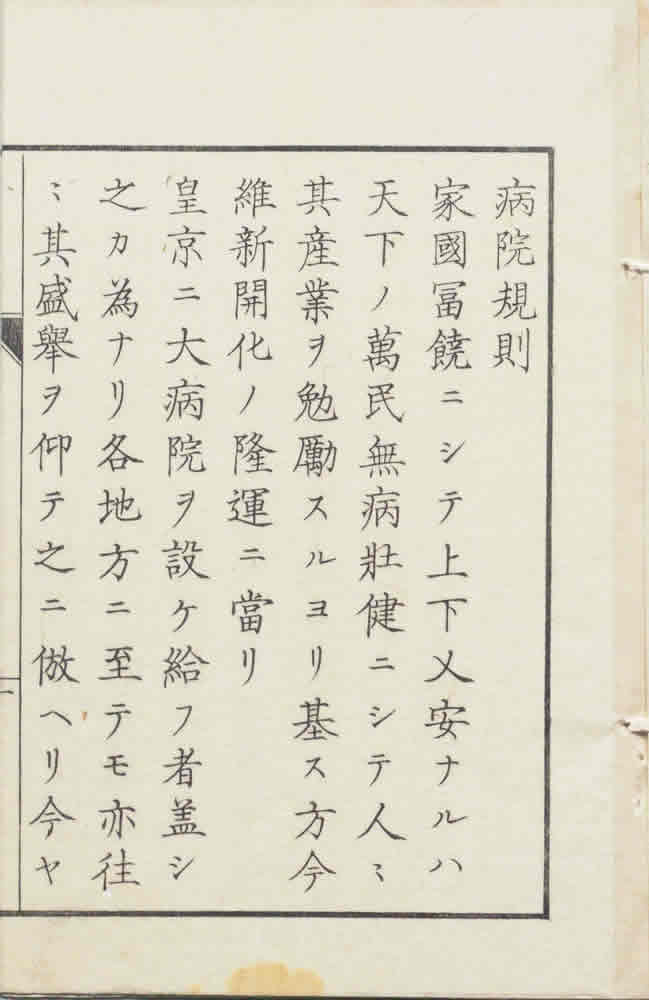 病院規則
家國冨饒ニシテ上下乂安ナルハ
天下ノ萬民無病壯健ニシテ人〻
其産業ヲ勉勵スルヨリ基ス方今
維新開化ノ隆運ニ當リ
皇京ニ大病院ヲ設ケ給フ者葢シ
之カ為ナリ各地方ニ至テモ亦往
〻其盛舉ヲ仰テ之ニ倣ヘリ今ヤ